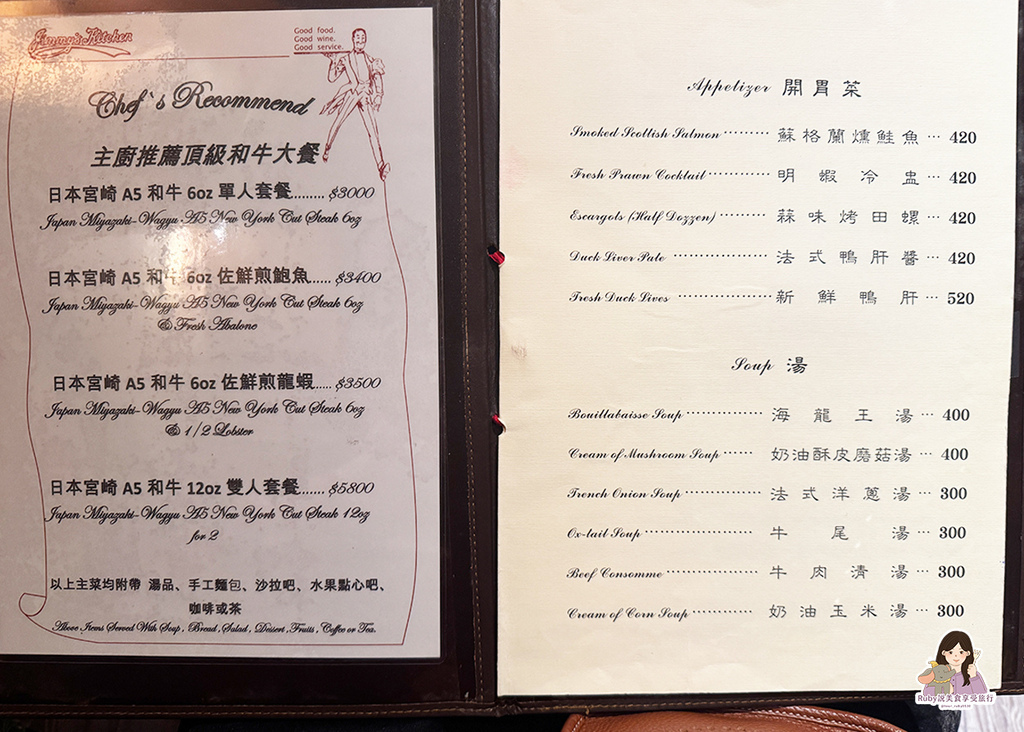 Jimmy's Kitchen
Good food.
Good wine.
Good service.
Chef`s Recommend
主廚推薦頂級和牛大餐
日本宮崎 A5 和牛 6oz 單人套餐........ $3000
Japan Miyazaki-Wagyu A5 New York Cut Steak 6oz
日本宮崎 A5 和牛 6oz 佐鮮煎鮑魚...... $3400
Japan Miyazaki-Wagyu A5 New York Cut Steak 6oz
& Fresh Abalone
日本宮崎 A5 和牛 6oz 佐鮮煎龍蝦..... $3500
Japan Miyazaki-Wagyu A5 New York Cut Steak 6oz
& 1/2 Lobster
日本宮崎 A5 和牛 12oz 雙人套餐....... $5800
Japan Miyazaki-Wagyu A5 New York Cut Steak 12oz
for 2
以上主菜均附帶 湯品、手工麵包、沙拉吧、水果點心吧、
咖啡或茶
Above Items Served With Soup , Bread , Salad , Dessert , Fruits , Coffee or Tea.
Appetizer 開胃菜
Smoked Scottish Salmon ········· 蘇格蘭燻鮭魚 ··· 420
Fresh Prawn Cocktail ············ 明蝦冷盅 ··· 420
Escargots (Half Dozzen) ········· 蒜味烤田螺 ··· 420
Duck Liver Pate ·················· 法式鴨肝醬 ··· 420
Fresh Duck Lives ·················· 新鮮鴨肝 ··· 520
Soup 湯
Bouillabaisse Soup ··············· 海龍王湯 ··· 400
Cream of Mushroom Soup ······ 奶油酥皮磨菇湯 ··· 400
French Onion Soup ··············· 法式洋蔥湯 ··· 300
Ox-tail Soup ····················· 牛尾湯 ··· 300
Beef Consomme ·················· 牛肉清湯 ··· 300
Cream of Corn Soup ············ 奶油玉米湯 ··· 300
Ruby說美食享受旅行